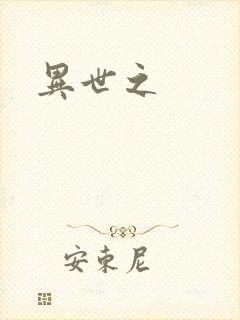 異世之
安東尼